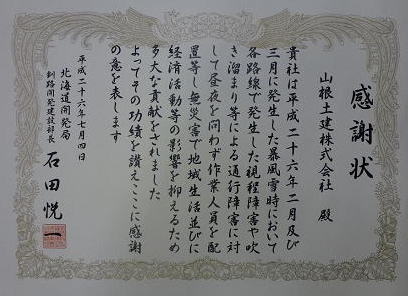 感謝状
山根土建株式会社 殿
貴社は平成二十六年二月及び
三月に発生した暴風雪時において
各路線で発生した視程障害や吹
き溜まり等による通行障害に対
して昼夜を問わず作業人員を配
置等し無災害で地域生活並びに
経済活動等の影響を抑えるため
多大な貢献をされました
よってその功績を讃えここに感謝
の意を表します
平成二十六年七月四日
北海道開発局
釧路開発建設部長 石田悦一